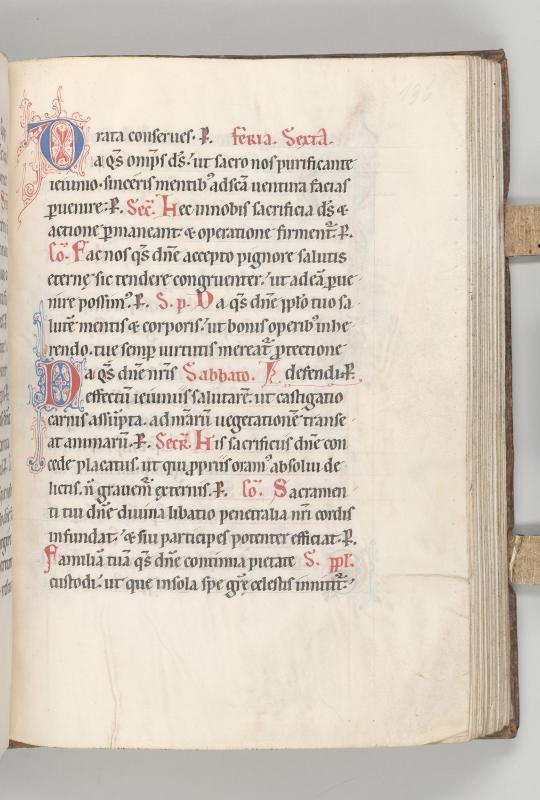 rata conserues. P. feria. Sexta.
D a q̄s omp̄s ds̄. ut sacro nos purificante
ieiunio. sinceris mentib; ad sc̄a uentura facias
ꝑuenire. P. Sec̄. Hec in nobis sacrificia ds̄ &
actione ꝑmaneant. & operatione firment᷑. P.
Co᷑. Fac nos q̄s dn̄e accepto pignore salutis
eterne sic tendere congruenter. ut ad eā ꝑue
nire possim᷒. P. S. p. Da q̄s dn̄e pp̄lo tuo sa
lutē mentis & corporis. ut bonis operib᷒ inhe
rendo. tue semp̄ uirtutis mereat᷑ ꝓtectione
D a q̄s dn̄e nr̄is Sabbato. defendi. P.
effectū ieiuniis salutarē. ut castigatio
carnis assūpta. ad nr̄arū uegetationē transe
at animarū. P. Secr̄. His sacrificiis dn̄e con
cede placatus. ut qui ꝓpriis oram᷒ absolui de
lictis. n̄ grauem᷑ externis. P. Co᷑. Sacramen
ti tui dn̄e diuina libatio penetralia nr̄i cordis
infundat. & sui participes potenter efficiat. P.
Familiā tuā q̄s dn̄e continua pietate S. ppl̄.
custodi. ut que in sola spe gr̄e celestis innitit᷑.